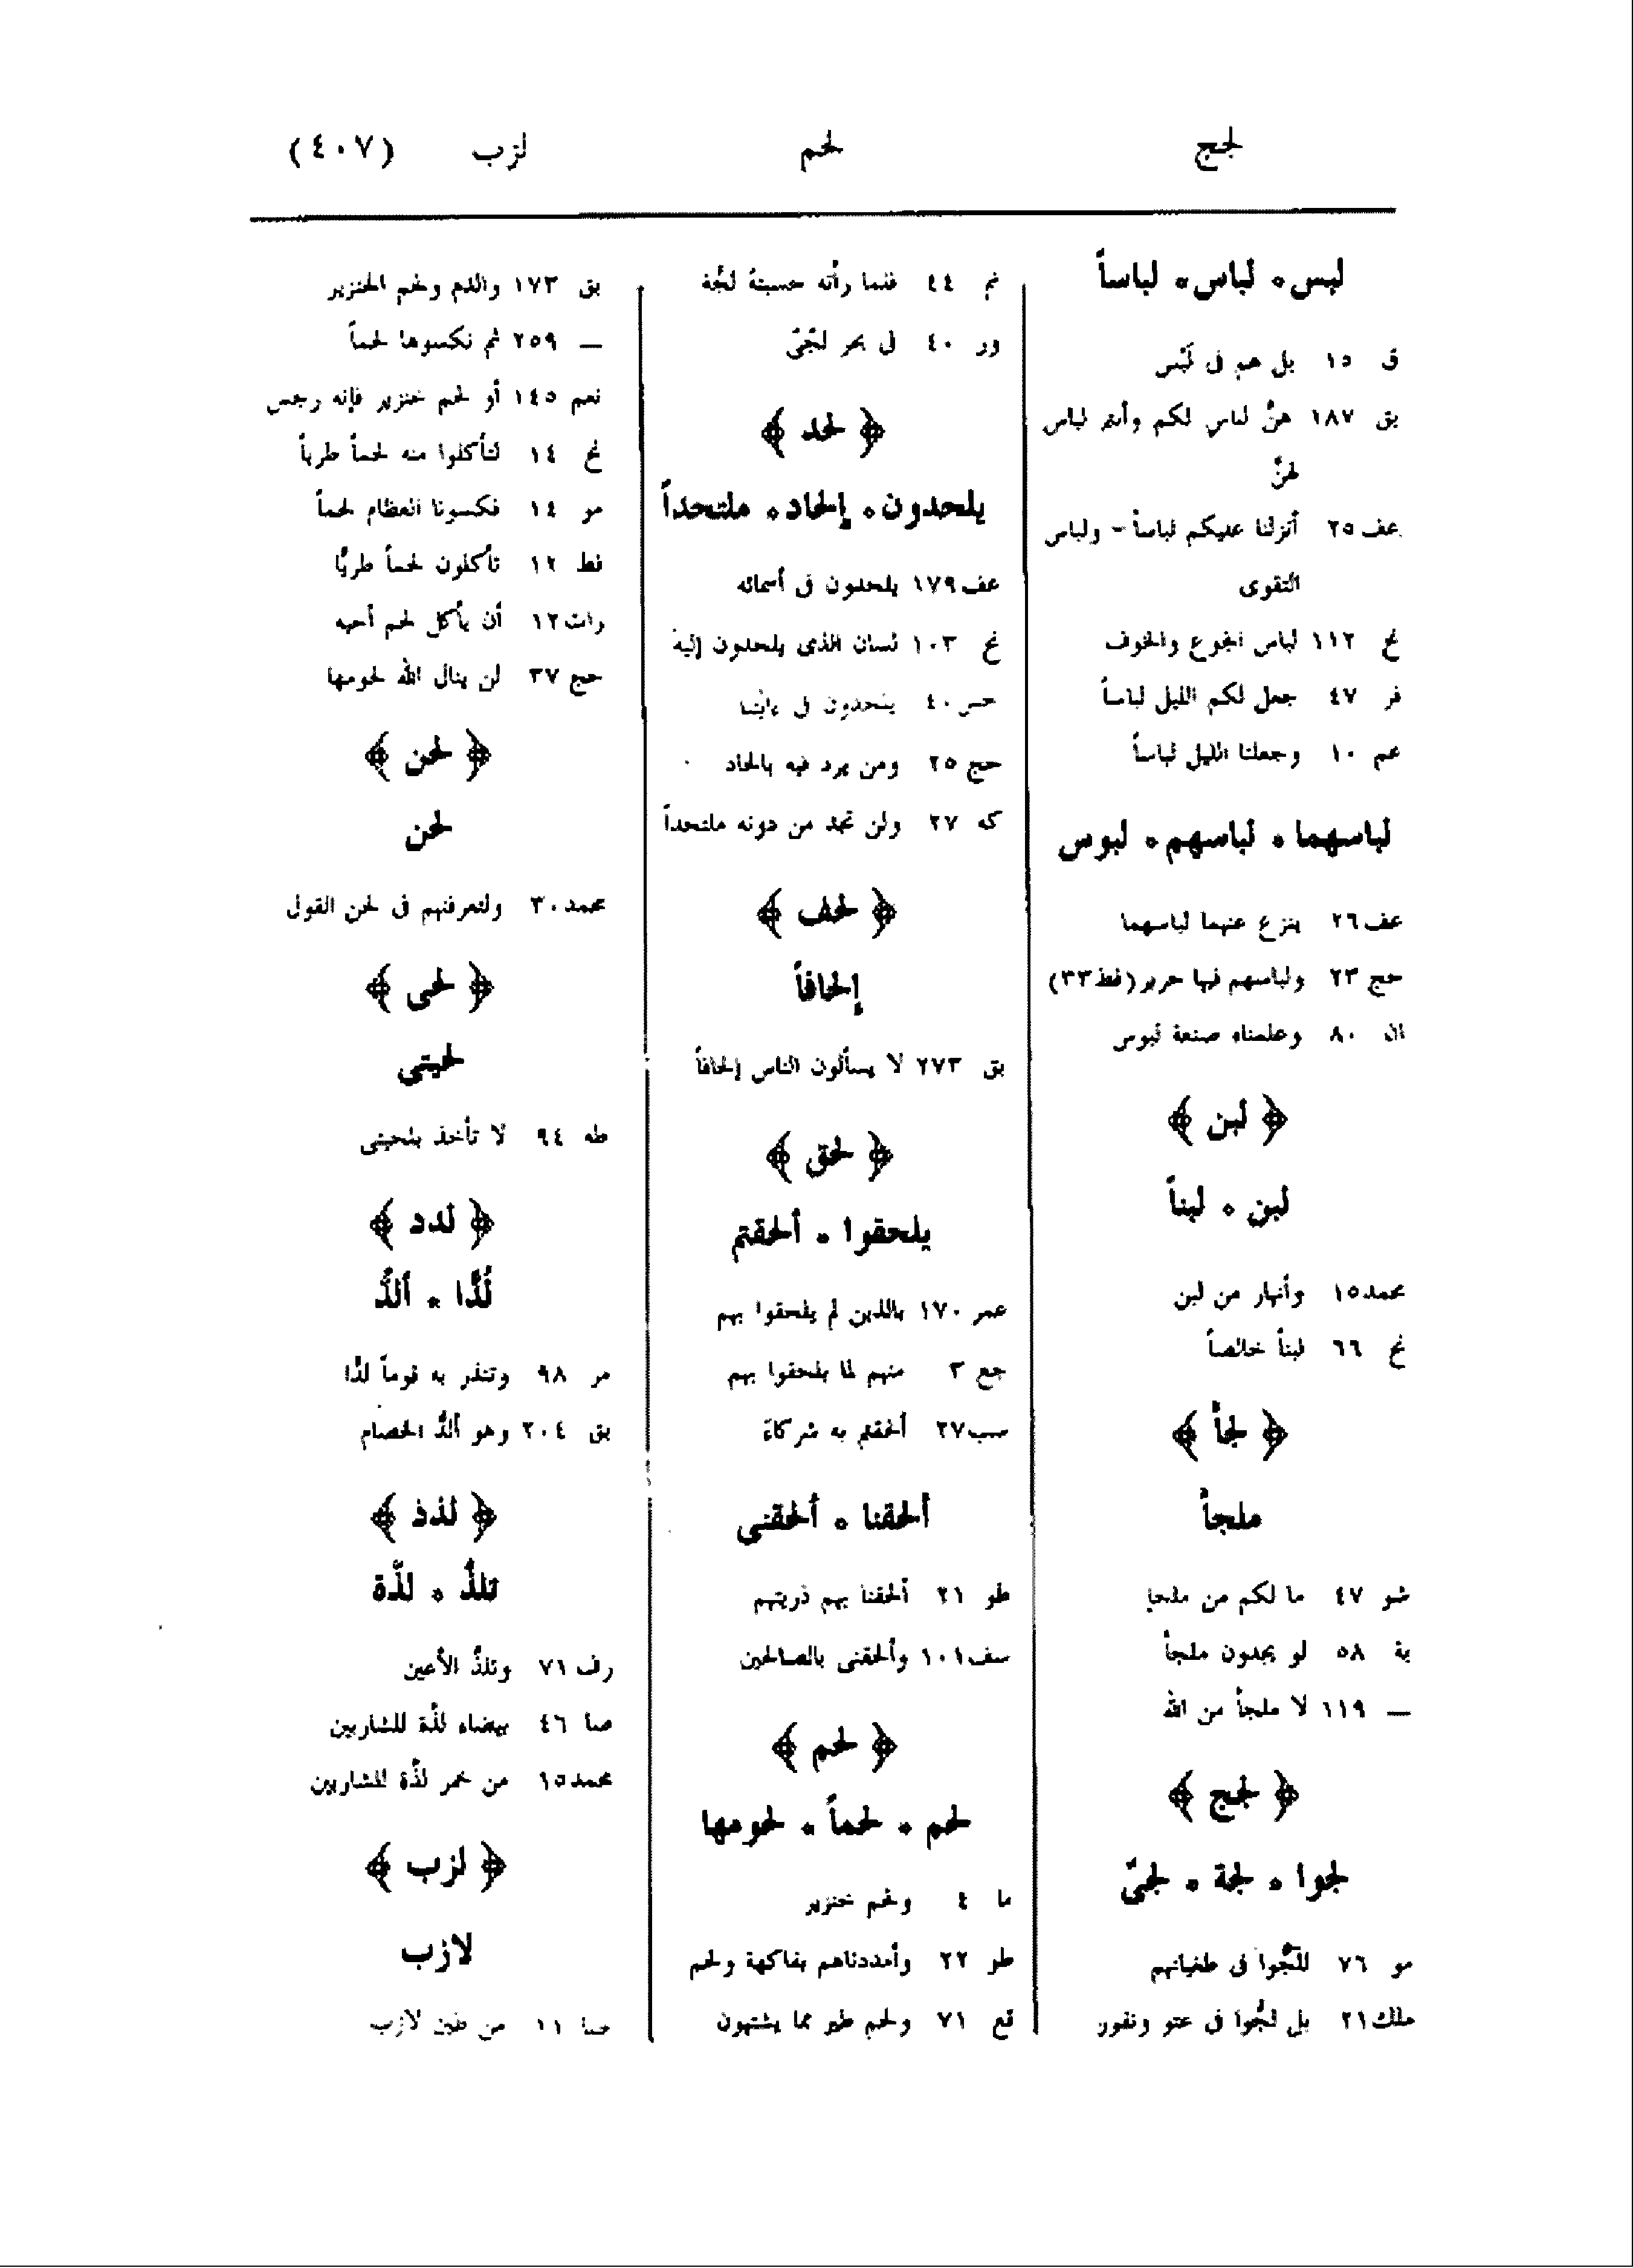 لجج لحم لزب (٤٠٧)
لبس ٠ لباس ٠ لباساً
ق ١٥ بل هم فى لَبْس
بق ١٨٧ هنَّ لباس لكم وأنتم لباس
لهنَّ
عف ٢٥ أنزلنا عليكم لباساً - ولباس
التقوى
نح ١١٢ لباس الجوع والخوف
فر ٤٧ جعل لكم الليل لباساً
عم ١٠ وجعلنا الليل لباساً
لباسهما ٠ لباسهم ٠ لبوس
عف ٢٦ ينزع عنهما لباسهما
حج ٢٣ ولباسهم فيها حرير (فط ٣٣)
ان ٨٠ وعلمناه صنعة لبوس
﴿ لبن ﴾
لبن ٠ لبناً
محمد ١٥ وأنهار من لبن
نح ٦٦ لبناً خالصاً
﴿ لجأ ﴾
ملجأ
شو ٤٧ ما لكم من ملجإ
بة ٥٨ لو يجدون ملجأ
— ١١٩ لا ملجأ من الله
﴿ لجج ﴾
لجوا ٠ لجة ٠ لجىّ
مو ٧٦ للجُّوا فى طغيانهم
ملك ٢١ بل لجُّوا فى عتو ونفور
نم ٤٤ فلما رأته حسبته لجَّة
ور ٤٠ فى بحر لجّىّ
﴿ لحد ﴾
يلحدون ٠ إلحاد ٠ ملتحداً
عف ١٧٩ يلحدون فى أسمائه
نح ١٠٣ لسان الذى يلحدون إليه
حس ٤٠ يلحدون فى آياتنا
حج ٢٥ ومن يرد فيه بالحاد
كه ٢٧ ولن تجد من دونه ملتحداً
﴿ لحف ﴾
إلحافاً
بق ٢٧٣ لا يسألون الناس إلحافاً
﴿ لحق ﴾
يلحقوا ٠ ألحقتم
عمر ١٧٠ بالذين لم يلحقوا بهم
جع ٣ منهم لما يلحقوا بهم
سب ٢٧ ألحقتم به شركاءَ
ألحقنا ٠ ألحقنى
طو ٢١ ألحقنا بهم ذريتهم
سف ١٠١ وألحقنى بالصالحين
﴿ لحم ﴾
لحم ٠ لحماً ٠ لحومها
ما ٤ ولحم خنزير
طو ٢٢ وأمددناهم بفاكهة ولحم
قع ٧١ ولحم طير مما يشتهون
بق ١٧٣ والدم ولحم الخنزير
— ٢٥٩ ثم نكسوها لحماً
نعم ١٤٥ أو لحم خنزير فإنه رجس
نح ١٤ لتأكلوا منه لحماً طرياً
مو ١٤ فكسونا العظام لحماً
فط ١٢ تأكلون لحماً طريًّا
رات ١٢ أن يأكل لحم أخيه
حج ٣٧ لن ينال الله لحومها
﴿ لحن ﴾
لحن
محمد ٣٠ ولتعرفنهم فى لحن القول
﴿ لحى ﴾
لحيتى
طه ٩٤ لا تأخذ بلحيتى
﴿ لدد ﴾
لُدًّا ٠ ألدُّ
مر ٩٨ وتنذر به قوماً لدًّا
بق ٢٠٤ وهو ألدُّ الخصام
﴿ لذذ ﴾
تلذُّ ٠ لذَّة
رف ٧١ وتلذُّ الأعين
صا ٤٦ بيضاء لذَّة للشاربين
محمد ١٥ من خمر لذَّة للشاربين
﴿ لزب ﴾
لازب
صا ١١ من طين لازب